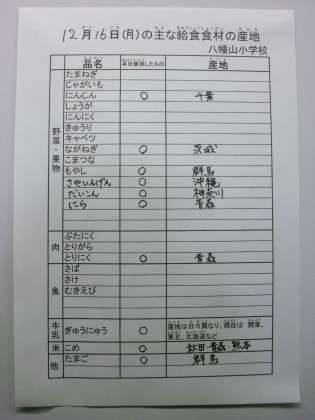 12月16日(月)の主な給食食材の産地
八幡山小学校
品名 本日使用したもの 産地
野菜・果物
たまねぎ
じゃがいも
にんじん ○ 千葉
しょうが
にんにく
きゅうり
キャベツ
ながねぎ ○ 茨城
こまつな
もやし ○ 群馬
さやいんげん ○ 沖縄
だいこん ○ 神奈川
にら ○ 青森
肉
ぶたにく
とりがら
とりにく ○ 青森
魚
さば
さけ
むきえび
牛乳 ぎゅうにゅう ○ 産地は日々異なり、現在は 関東、
東北、北海道など
米 こめ ○ 秋田・青森・熊本
他 たまご ○ 群馬